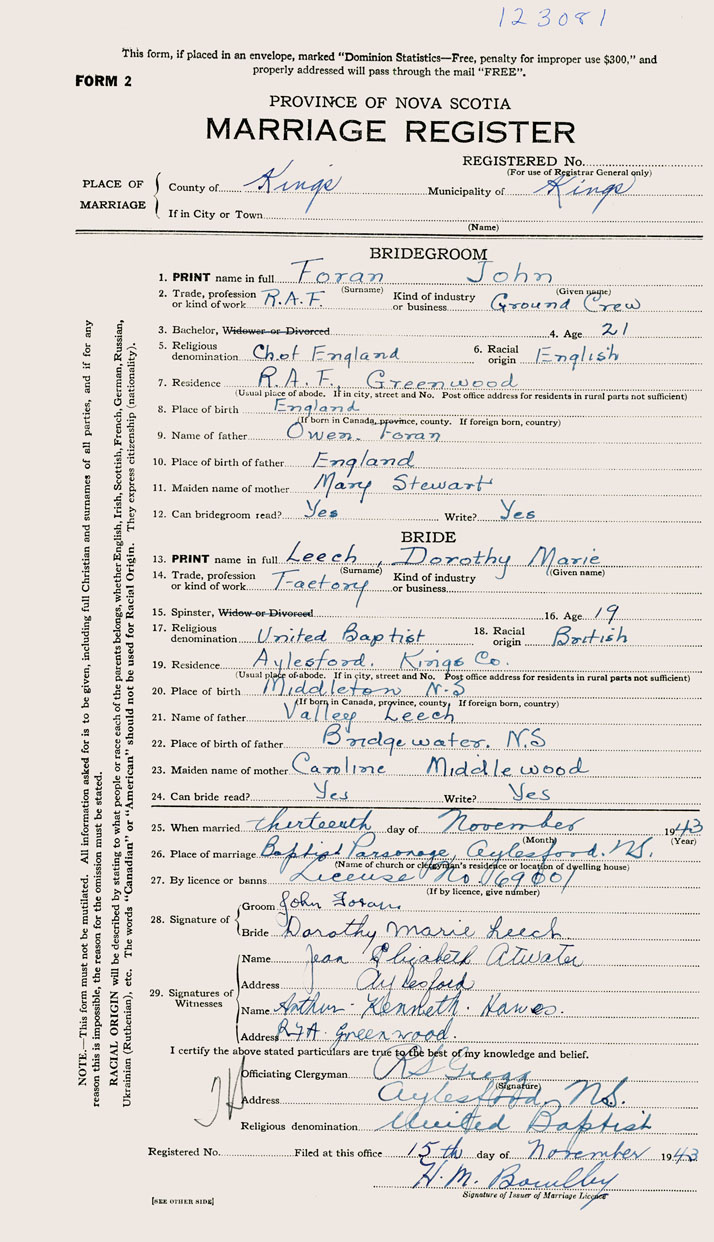 123081
This form, if placed in an envelope, marked "Dominion Statistics—Free, penalty for improper use $300," and
properly addressed will pass through the mail "FREE".
FORM 2
PROVINCE OF NOVA SCOTIA
MARRIAGE REGISTER
REGISTERED No.
(For use of Registrar General only)
PLACE OF MARRIAGE
County of Kings Municipality of Kings
If in City or Town
(Name)
BRIDEGROOM
1. PRINT name in full Foran John
(Surname) (Given name)
2. Trade, profession or kind of work R.A.F. Kind of industry or business Ground Crew
3. Bachelor, Widower or Divorced 4. Age 21
5. Religious denomination Ch of England 6. Racial origin English
7. Residence R.A.F. Greenwood
(Usual place of abode. If in city, street and No. Post office address for residents in rural parts not sufficient)
8. Place of birth England
(If born in Canada, province, county. If foreign born, country)
9. Name of father Owen Foran
10. Place of birth of father England
11. Maiden name of mother Mary Stewart
12. Can bridegroom read? Yes Write? Yes
BRIDE
13. PRINT name in full Leech, Dorothy Marie
(Surname) (Given name)
14. Trade, profession or kind of work Factory Kind of industry or business
15. Spinster, Widow or Divorced 16. Age 19
17. Religious denomination United Baptist 18. Racial origin British
19. Residence Aylesford. Kings Co.
(Usual place of abode. If in city, street and No. Post office address for residents in rural parts not sufficient)
20. Place of birth Middleton N.S
(If born in Canada, province, county. If foreign born, country)
21. Name of father Valley Leech
22. Place of birth of father Bridgewater. N.S
23. Maiden name of mother Caroline Middlewood
24. Can bride read? Yes Write? Yes
25. When married thirteenth day of November 1943
(Month) (Year)
26. Place of marriage Baptist Parsonage, Aylesford. N.S.
(Name of church or clergyman's residence or location of dwelling house)
27. By licence or banns License No. 169001
(If by licence, give number)
28. Signature of
Groom John Foran
Bride Dorothy Marie Leech
29. Signatures of Witnesses
Name Jean Elizabeth Atwater
Address Aylesford
Name Arthur Kenneth Hawes.
Address Greenwood.
I certify the above stated particulars are true to the best of my knowledge and belief.
Officiating Clergyman RS Gregg
(Signature)
Address Aylesford, N.S.
Religious denomination United Baptist
Registered No. Filed at this office 15th day of November 1943
H. M. Bowlby
Signature of Issuer of Marriage Licence
[SEE OTHER SIDE]
NOTE.—This form must not be mutilated. All information asked for is to be given, including full Christian and surnames of all parties, and if for any
reason this is impossible, the reason for the omission must be stated.
RACIAL ORIGIN will be described by stating to what people or race each of the parents belongs, whether English, Irish, Scottish, French, German, Russian,
Ukrainian (Ruthenian), etc. The words "Canadian" or "American" should not be used for Racial Origin. They express citizenship (nationality).